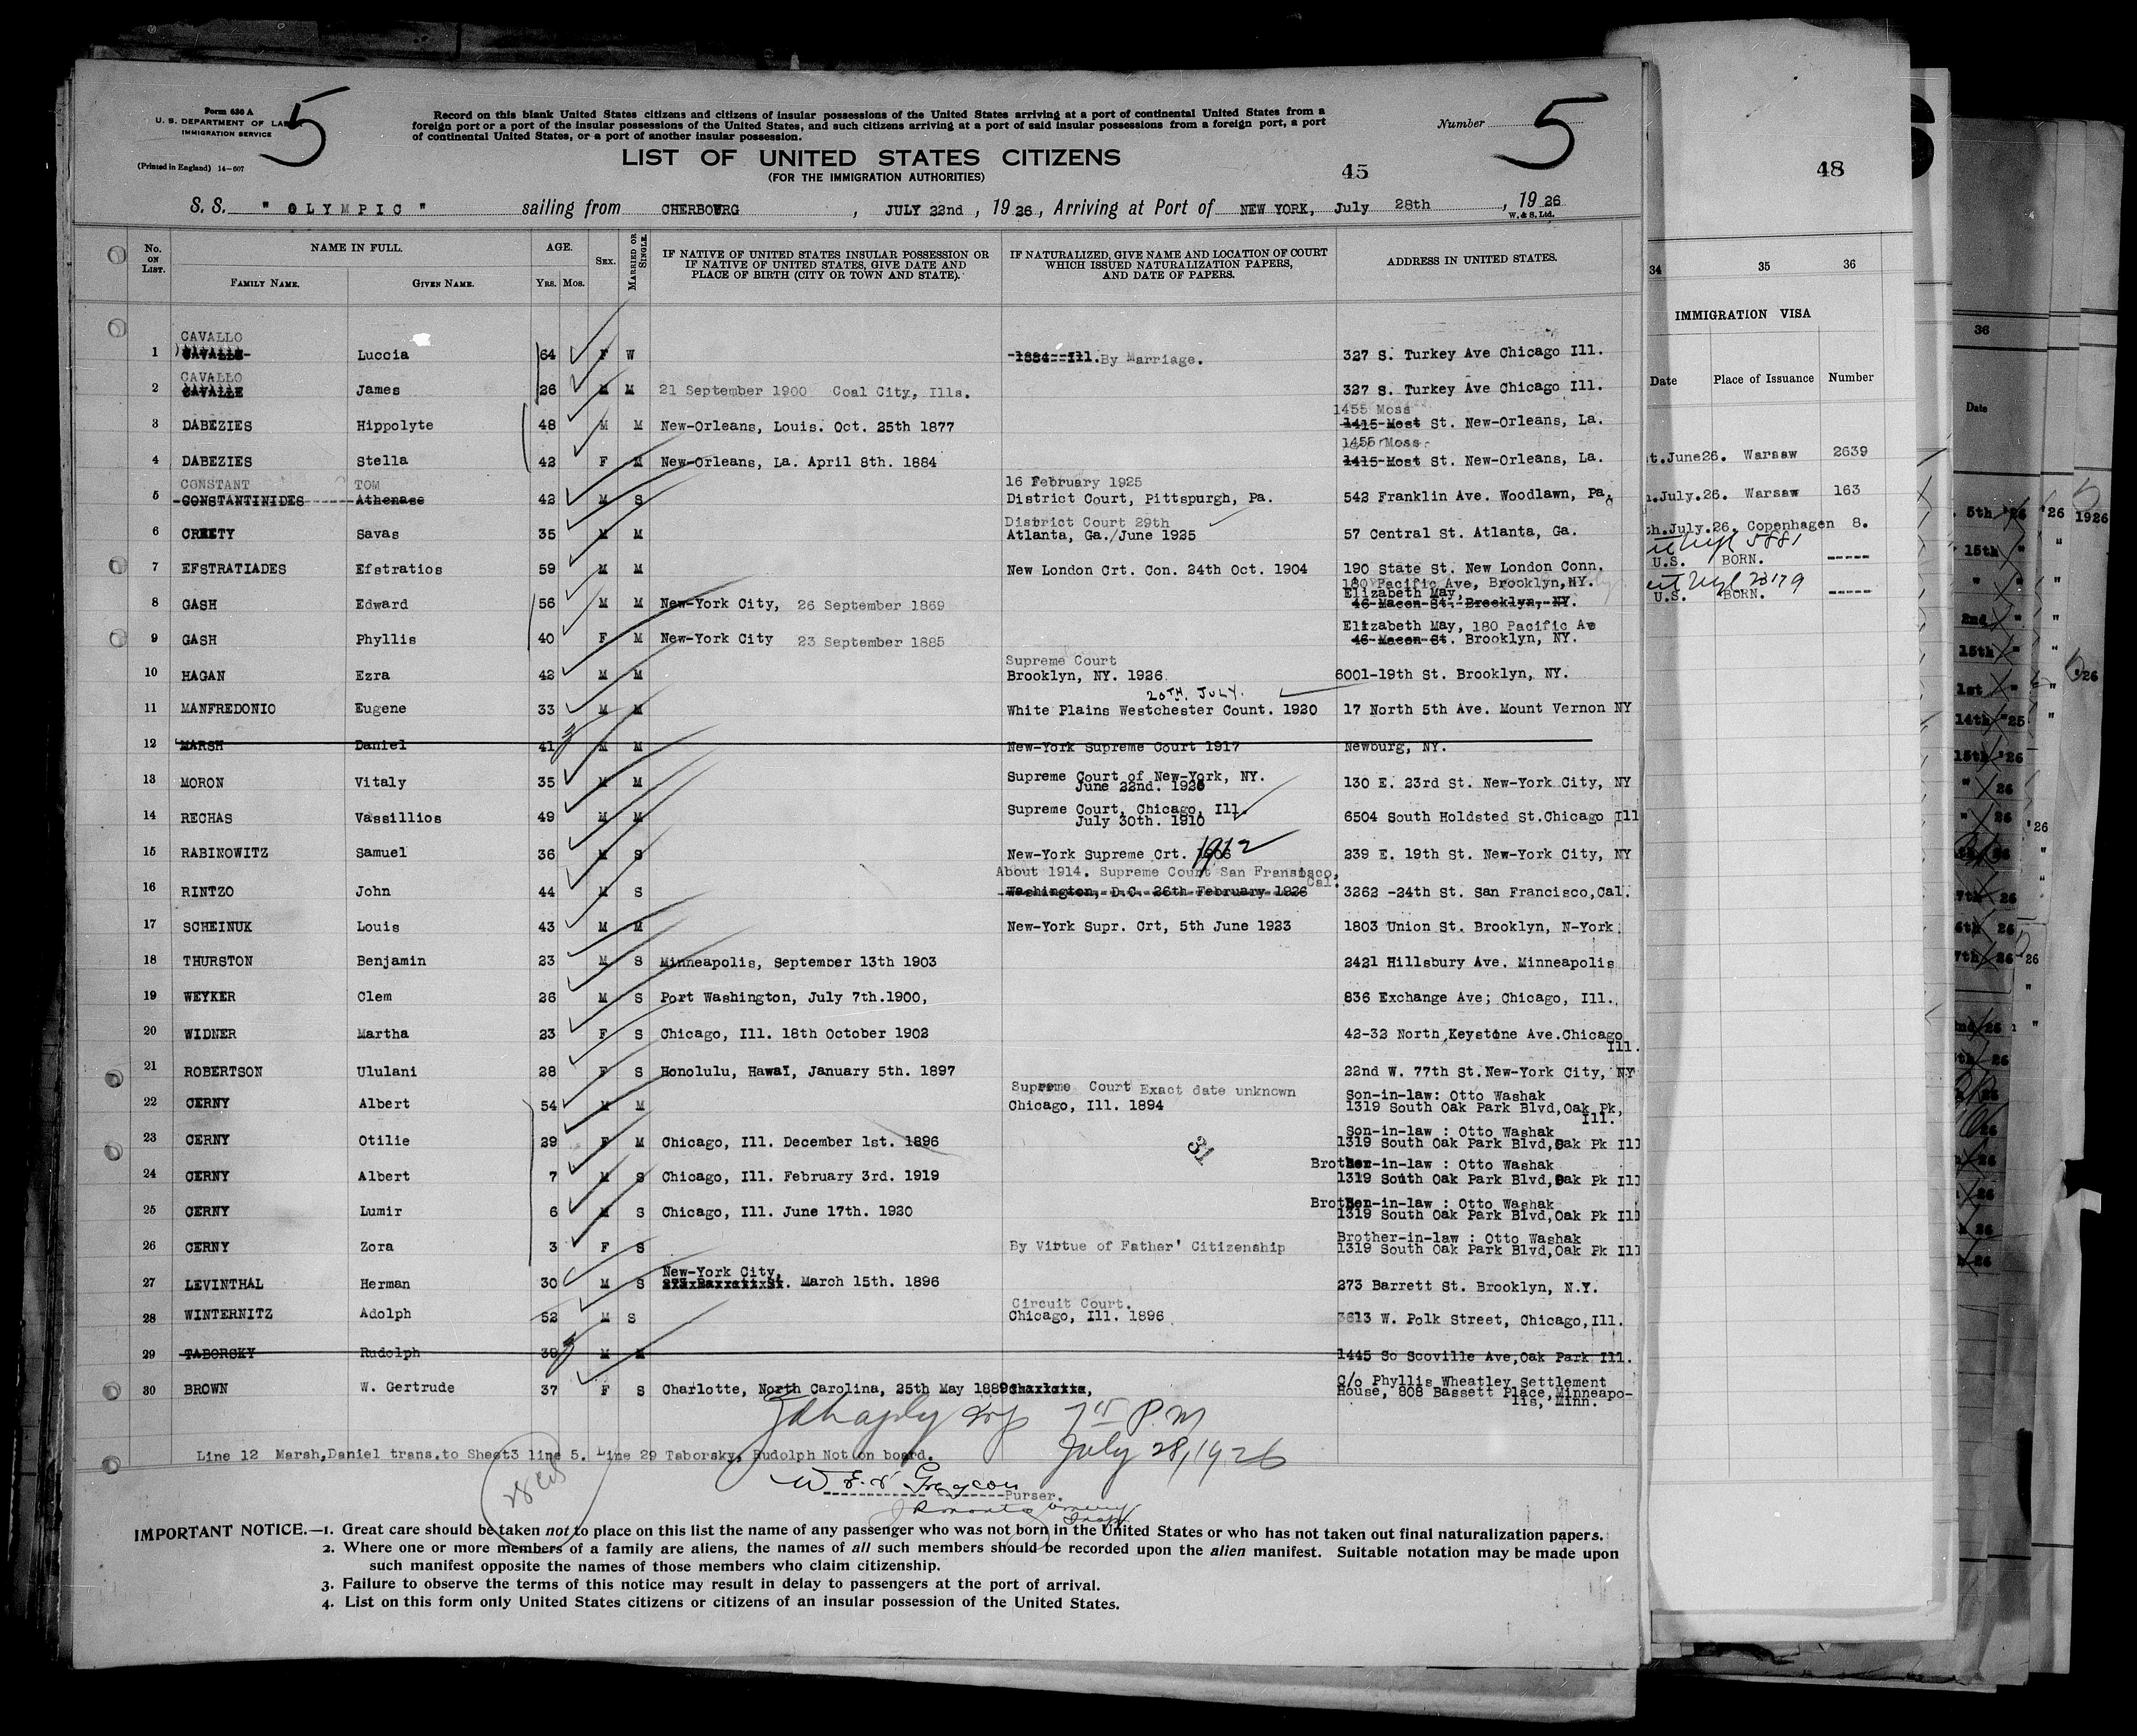 Form 630 A
U. S. DEPARTMENT OF LABOR
IMMIGRATION SERVICE
(Printed in England) 14—607
5
Record on this blank United States citizens and citizens of insular possessions of the United States arriving at a port of continental United States from a
foreign port or a port of the insular possessions of the United States, and such citizens arriving at a port of said insular possessions from a foreign port, a port
of continental United States, or a port of another insular possession.
Number 5
LIST OF UNITED STATES CITIZENS
(FOR THE IMMIGRATION AUTHORITIES)
45
S. S. " OLYMPIC " sailing from CHERBOURG, JULY 22nd, 1926, Arriving at Port of NEW YORK, July 28th, 1926
W. & S. Ltd.
No. ON LIST. NAME IN FULL. AGE. SEX. MARRIED OR SINGLE. IF NATIVE OF UNITED STATES INSULAR POSSESSION OR IF NATIVE OF UNITED STATES, GIVE DATE AND PLACE OF BIRTH (CITY OR TOWN AND STATE). IF NATURALIZED, GIVE NAME AND LOCATION OF COURT WHICH ISSUED NATURALIZATION PAPERS, AND DATE OF PAPERS. ADDRESS IN UNITED STATES.
FAMILY NAME. GIVEN NAME. YRS. MOS.
CAVALLO
1 CAVALLE Luccia 64 F W 1884--Ill. By Marriage. 327 S. Turkey Ave Chicago Ill.
CAVALLO
2 CAVALLE James 26 M M 21 September 1900 Coal City, Ills. 327 S. Turkey Ave Chicago Ill.
1455 Moss
3 DABEZIES Hippolyte 48 M M New-Orleans, Louis. Oct. 25th 1877 1415 Most St. New-Orleans, La.
1455 Moss
4 DABEZIES Stella 42 F M New-Orleans, La. April 8th. 1884 1415 Most St. New-Orleans, La.
CONSTANT TOM 16 February 1925
5 CONSTANTINIDES Athenase 42 M S District Court, Pittspurgh, Pa. 542 Franklin Ave. Woodlawn, Pa.
District Court 29th
6 CREETY Savas 35 M M Atlanta, Ga./June 1925 57 Central St. Atlanta, Ga.
7 EFSTRATIADES Efstratios 59 M M New London Crt. Con. 24th Oct. 1904 190 State St. New London Conn.
180 Pacific Ave, Brooklyn, NY.
Elizabeth May,
8 GASH Edward 56 M M New-York City, 26 September 1869 46 Macon St. Brooklyn, NY.
Elizabeth May, 180 Pacific Av
9 GASH Phyllis 40 F M New-York City 23 September 1885 46 Macon St. Brooklyn, NY.
Supreme Court
10 HAGAN Ezra 42 M M Brooklyn, NY. 1926 6001-19th St. Brooklyn, NY.
20TH. JULY.
11 MANFREDONIO Eugene 33 M M White Plains Westchester Count. 1920 17 North 5th Ave. Mount Vernon NY
12 MARSH Daniel 41 M M New-York Supreme Court 1917 Newburg, NY.
13 MORON Vitaly 35 M M Supreme Court of New-York, NY. 130 E. 23rd St. New-York City, NY
June 22nd. 1926
14 RECHAS Vassillios 49 M M Supreme Court, Chicago, Ill. 6504 South Holdsted St.Chicago Ill
July 30th. 1910
15 RABINOWITZ Samuel 36 M S New-York Supreme Crt. 1906 1912 239 E. 19th St. New-York City, NY
About 1914. Supreme Court San Fransisco, Cal.
16 RINTZO John 44 M S Washington, D.C. 26th February 1926 3262 -24th St. San Francisco,Cal.
17 SCHEINUK Louis 43 M M New-York Supr. Crt, 5th June 1923 1803 Union St. Brooklyn, N-York.
18 THURSTON Benjamin 23 M S Minneapolis, September 13th 1903 2421 Hillsbury Ave. Minneapolis
19 WEYKER Clem 26 M S Port Washington, July 7th.1900, 836 Exchange Ave; Chicago, Ill.
20 WIDNER Martha 23 F S Chicago, Ill. 18th October 1902 42-32 North Keystone Ave.Chicago
Ill.
21 ROBERTSON Ululani 28 F S Honolulu, Hawaï, January 5th. 1897 22nd W. 77th St.New-York City, NY
Supreme Court Exact date unknown Son-in-law: Otto Washak
22 CERNY Albert 54 M M Chicago, Ill. 1894 1319 South Oak Park Blvd,Oak Pk,
Ill.
Son-in-law : Otto Washak
23 CERNY Otilie 29 F M Chicago, Ill. December 1st. 1896 1319 South Oak Park Blvd,Oak Pk Ill
31
Brother-in-law : Otto Washak
24 CERNY Albert 7 M S Chicago, Ill. February 3rd. 1919 1319 South Oak Park Blvd,Oak Pk Ill
Brother-in-law : Otto Washak
25 CERNY Lumir 6 M S Chicago, Ill. June 17th. 1920 1319 South Oak Park Blvd,Oak Pk Ill
Brother-in-law : Otto Washak
26 CERNY Zora 3 F S By Virtue of Father' Citizenship 1319 South Oak Park Blvd,Oak Pk Ill
New-York City,
27 LEVINTHAL Herman 30 M S 273 Barrett St. March 15th. 1896 273 Barrett St. Brooklyn, N.Y.
Circuit Court.
28 WINTERNITZ Adolph 52 M S Chicago, Ill. 1896 3613 W. Polk Street, Chicago,Ill.
29 TABORSKY Rudolph 39 M M 1445 So Scoville Ave,Oak Park Ill.
30 BROWN W. Gertrude 37 F S Charlotte, North Carolina, 25th May 1889 Charlotte, C/o Phyllis Wheatley Settlement
House, 808 Bassett Place, Minneapo-
lis, Minn.
7 15 P.M
July 28, 1926
Line 12 Marsh,Daniel trans.to Sheet3 line 5. Line 29 Taborsky, Rudolph Not on board.
Purser.
IMPORTANT NOTICE.—1. Great care should be taken not to place on this list the name of any passenger who was not born in the United States or who has not taken out final naturalization papers.
2. Where one or more members of a family are aliens, the names of all such members should be recorded upon the alien manifest. Suitable notation may be made upon
such manifest opposite the names of those members who claim citizenship.
3. Failure to observe the terms of this notice may result in delay to passengers at the port of arrival.
4. List on this form only United States citizens or citizens of an insular possession of the United States.
48
34 35 36
IMMIGRATION VISA
Date Place of Issuance Number
t.June26. Warsaw 2639
.July.26. Warsaw 163
th.July.26. Copenhagen 8.
5881
U.S. BORN. -----
23179
U.S. BORN. -----
36
Date
5th '26 '26 1926
15th "
2nd "
15th "
1st "
14th '25 "
15th '26